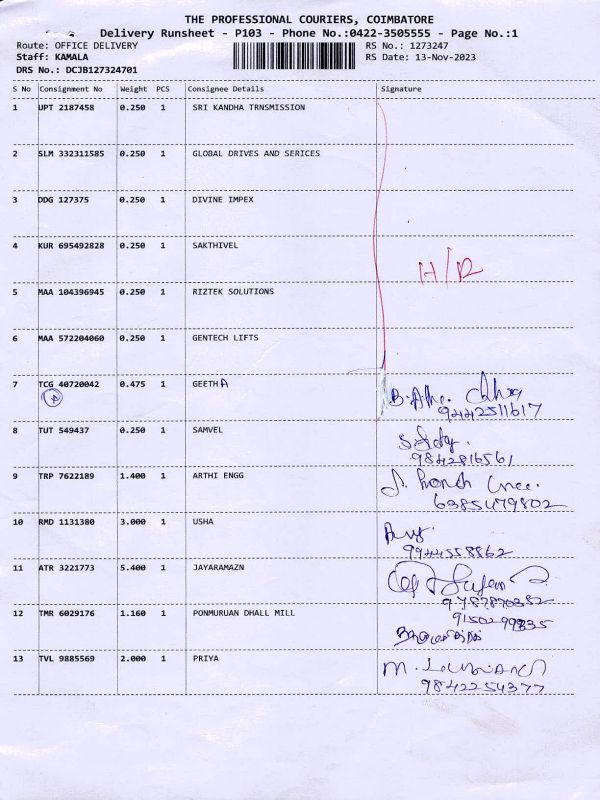 THE PROFESSIONAL COURIERS, COIMBATORE
Delivery Runsheet - P103 - Phone No.:0422-3505555 - Page No.:1
Route: OFFICE DELIVERY RS No.: 1273247
Staff: KAMALA RS Date: 13-Nov-2023
DRS No.: DCJB127324701
S No Consignment No Weight PCS Consignee Details Signature
1 UPT 2187458 0.250 1 SRI KANDHA TRNSMISSION
2 SLM 332311585 0.250 1 GLOBAL DRIVES AND SERICES
3 DDG 127375 0.250 1 DIVINE IMPEX
4 KUR 695492828 0.250 1 SAKTHIVEL
H/R
5 MAA 104396945 0.250 1 RIZTEK SOLUTIONS
6 MAA 572204060 0.250 1 GENTECH LIFTS
7 TCG 40720042 0.475 1 GEETHA
9442511617
8 TUT 549437 0.250 1 SAMVEL
9842816561
9 TRP 7622189 1.400 1 ARTHI ENGG
6385479802
10 RMD 1131380 3.000 1 USHA
9944558862
11 ATR 3221773 5.400 1 JAYARAMAZN
9787870352
12 TMR 6029176 1.160 1 PONMURUAN DHALL MILL
9150299835
13 TVL 9885569 2.000 1 PRIYA
9842254377